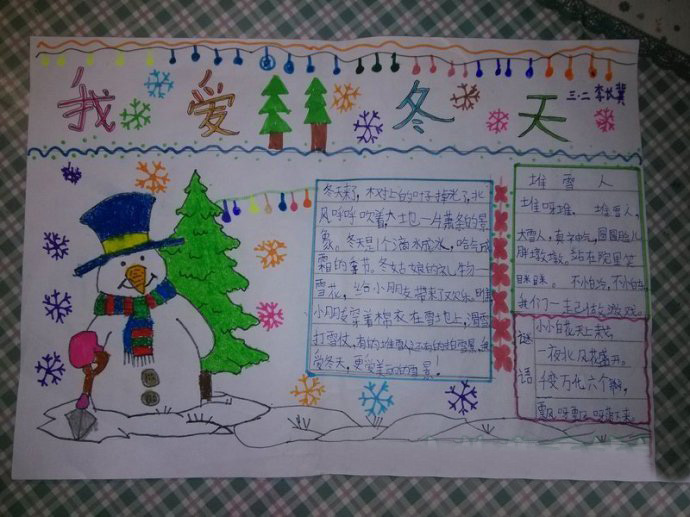 我爱冬天
三.二 李
冬天来了,树上的叶子掉光了,北
风呼呼吹着大地一片萧条的景
象。冬天是个滴水成冰,哈气成
霜的季节。冬姑娘的礼物一
雪花,给小朋友带来了欢乐。
小朋友穿着棉衣在雪地上,滑雪
打雪仗,有的堆雪人有的拍雪景,我
爱冬天,更爱美丽的雪景!
堆雪人
堆呀堆,堆雪人,
大雪人,真神气,圆圆脸儿
胖墩墩。站在院里笑
眯眯。不怕冷,不怕冻,
我们一起做游戏。
谜语
小小白花天上来,
一夜北风花盛开。
千变万化六个瓣,
飘呀飘呀落下来。